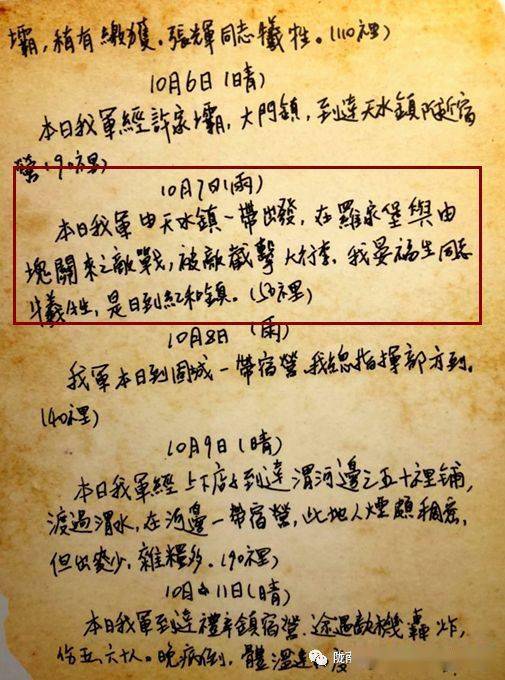 壩，稍有繳獲。張輝同志犧牲。(110裡)
10月6日(晴)
本日我軍經許家壩，大門鎮，到達天水鎮附近宿
營(90裡)
10月7日(雨)
本日我軍由天水鎮一帶出發，在羅家堡與由
塊關來之敵戰，被敵截擊大行李，我晏福生同志
犧牲，是日到紅和鎮。(50裡)
10月8日 (雨)
我軍本日到固城一帶宿營，我總指揮部方到。
(40裡)
10月9日(晴)
本日我軍經上下店子到達渭河邊之五十裡鋪，
渡過渭水，在河邊一帶宿營，此地人煙頗稠密，
但出麥少，雜糧多。(90裡)
10月11日(晴)
本日我軍到達禮辛鎮宿營，途遇敵機轟炸，
伤五六十人。晚病倒，體溫達
度